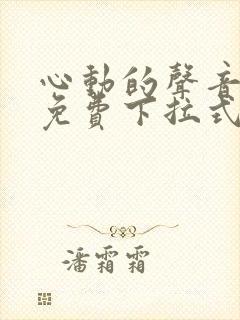 心動的聲音
免費下拉式
潘霜霜